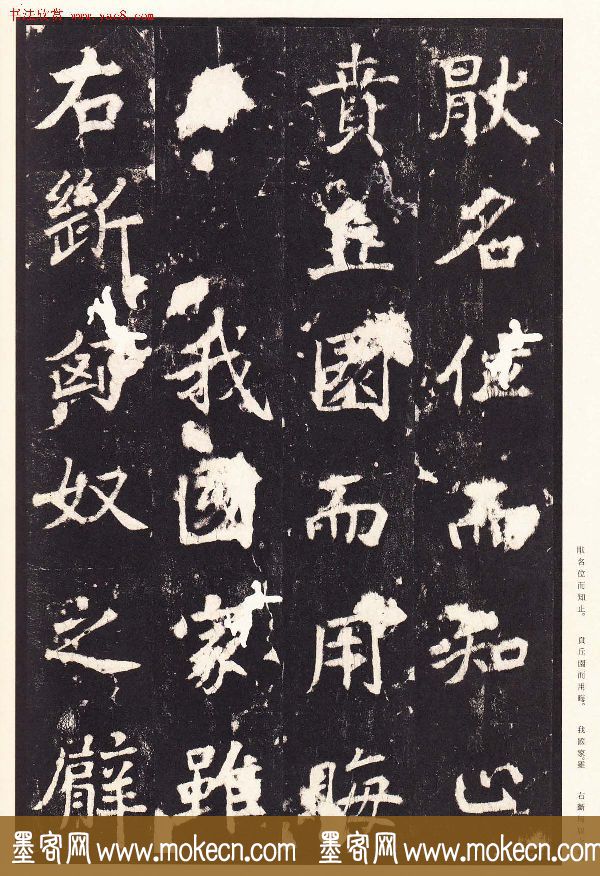 书法欣赏 www.yac8.com
猒名位而知止
賁丘園而用晦
我國家雖
右斷匈奴之臂
猒名位而知止。 賁丘園而用晦。 我國家。雖 右斷
墨客网 www.mokecn.com 墨客网 www.mokecn.com